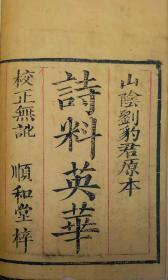 山陰劉豹君原本
詩料英華
校正無訛 順和堂梓